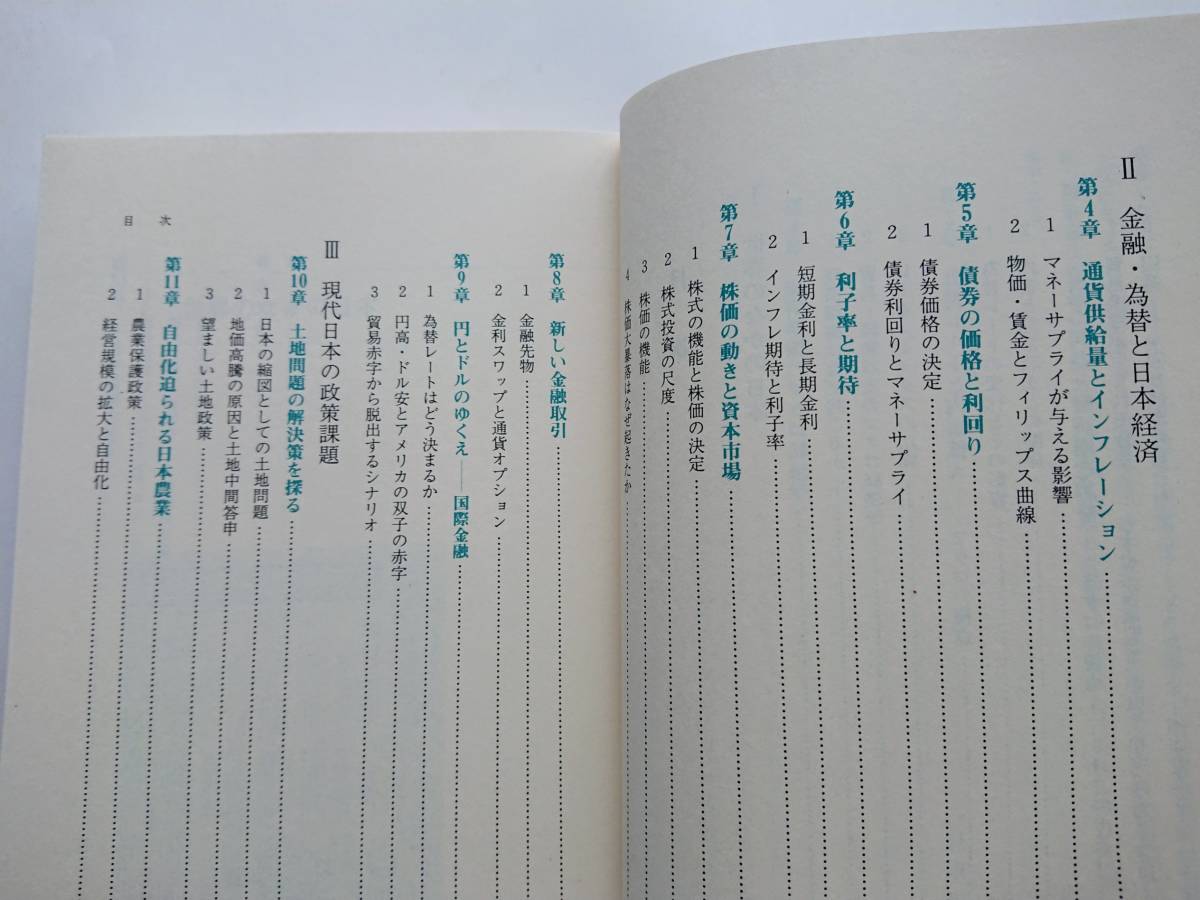 Ⅱ 金融・為替と日本経済
第4章 通貨供給量とインフレーション
1 マネーサプライが与える影響
2 物価・賃金とフィリップス曲線
第5章 債券の価格と利回り
1 債券価格の決定
2 債券利回りとマネーサプライ
第6章 利子率と期待
1 短期金利と長期金利
2 インフレ期待と利子率
第7章 株価の動きと資本市場
1 株式の機能と株価の決定
2 株式投資の尺度
3 株価の機能
4 株価大暴落はなぜ起きたか
第8章 新しい金融取引
1 金融先物
2 金利スワップと通貨オプション
第9章 円とドルのゆくえ——国際金融
1 為替レートはどう決まるか
2 円高・ドル安とアメリカの双子の赤字
3 貿易赤字から脱出するシナリオ
Ⅲ 現代日本の政策課題
第10章 土地問題の解決策を探る
1 日本の縮図としての土地問題
2 地価高騰の原因と土地中間答申
3 望ましい土地政策
第11章 自由化迫られる日本農業
1 農業保護政策
2 経営規模の拡大と自由化
目次